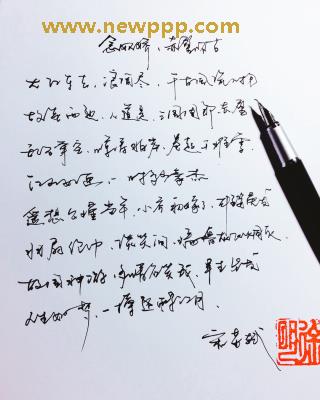 www.newppp.com
念奴娇、赤壁怀古
大江东去,浪淘尽,千古风流人物
故垒西边,人道是,三国周郎赤壁
乱石穿空,惊涛拍岸,卷起千堆雪
江山如画,一时多少豪杰
遥想公瑾当年,小乔初嫁了,雄姿英发
羽扇纶巾,谈笑间,樯橹灰飞烟灭
故国神游,多情应笑我,早生华发
人生如梦,一尊还酹江月